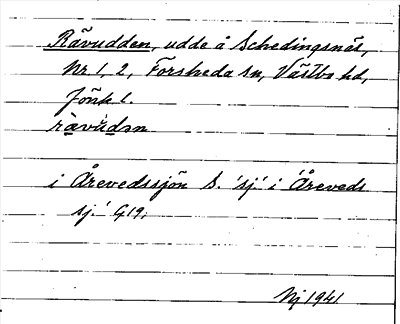 Rävudden, udde å Schedingsnäs,
Nr 1, 2, Forsheda sn, Västbo hd,
Jönk l.
rävùdən
i Årevedssjön S. 'sj.' i Åreveds
sj.' G19;
Nj 1941